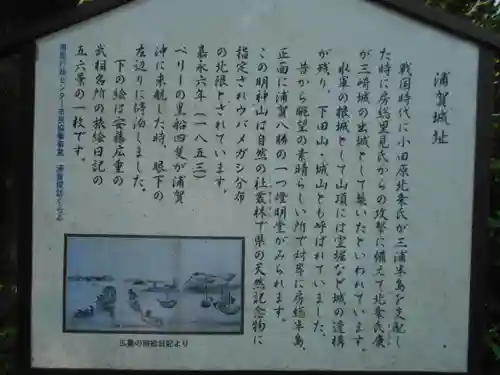 浦賀城址
戦国時代に小田原北条氏が三浦半島を支配し
た時に房総里見氏からの攻撃に備えて北条氏康
が三崎城の出城として築いたといわれています。
水軍の根城として山頂には空堀など城の遺構
が残り、下田山・城山とも呼ばれていました。
昔から眺望の素晴らしい所で対岸に房総半島、
正面に浦賀八勝の一つ燈明堂がみられます。
この明神山は自然の社叢林で県の天然記念物に
指定されウバメガシ分布
の北限とされています。
嘉永六年(一八五三)
ペリーの黒船四隻が浦賀
沖に来航した時、眼下の
左辺りに停泊しました。
下の絵は安藤広重の
武相名所の旅絵日記の
五六景の一枚です。
浦賀行政センター市民協働事業 浦賀探訪くらぶ
広重の旅絵日記より